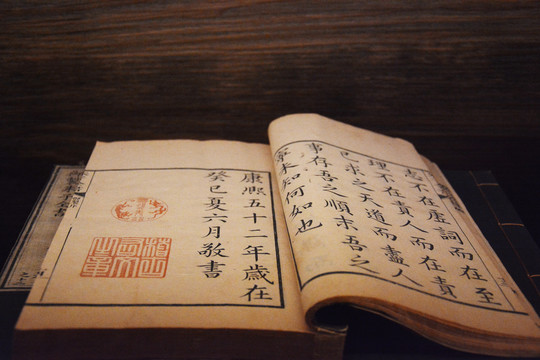 志不在虛詞而在至
理不在責人而在責
己求之天道而盡人
事存吾之順吾之
寧未知何如也
康熙五十二年歲在
癸巳夏六月敬書
稽古
右文
之章